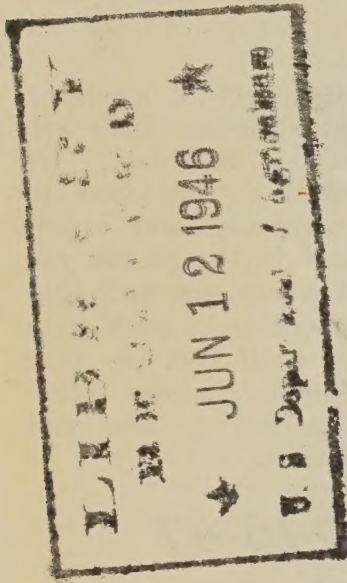 LIBRARY
★ JUN 12 1946 ★
U. S. Department of Agriculture